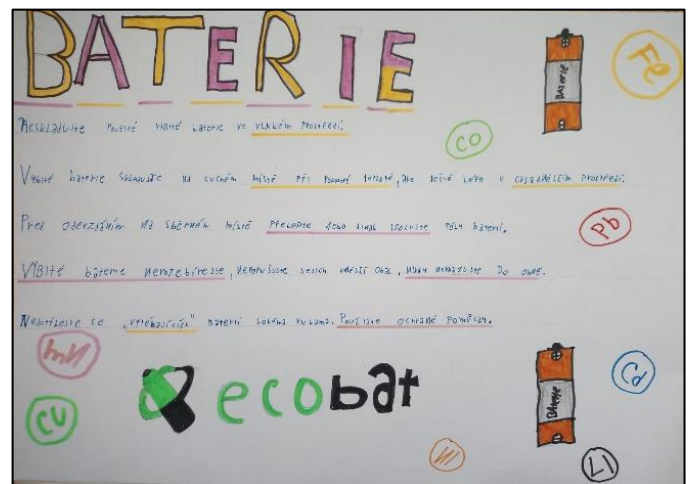 BATERIE
Baterie
Fe
Neskladujte použité vybité baterie ve vlhkém prostředí.
CO
Vybité baterie skladujte na suchém místě při pokojové teplotě, ale ještě lépe v chladnějším prostředí.
Před odevzdáním na sběrném místě přelepte nebo jinak izolujte póly baterií.
Pb
Vybité baterie nerozebírejte, neporušujte jejich vnější obal, nikdy nevhazujte do ohně.
Nedotýkejte se „vytékajících" baterií holýma rukama. Použijte ochranné pomůcky.
Mn
Cd
Baterie
CU
ecobat
NI
LI